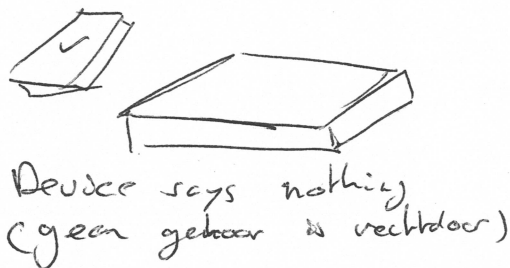 Device says nothing
(geen gehoor is rechtdoor)